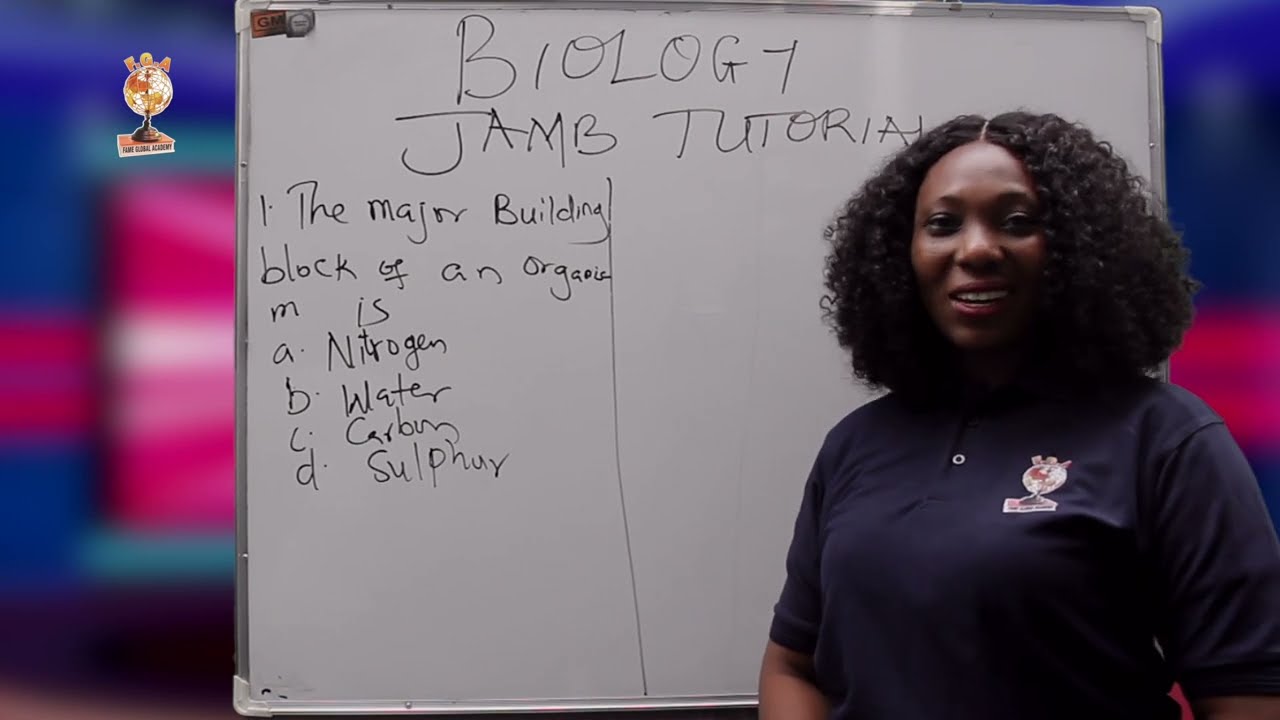 GM
F.G.A
FAME GLOBAL ACADEMY
BIOLOGY
JAMB TUTORIAL
1. The major Building
block of an organis
m is
a. Nitrogen
b. Water
c. Carbon
d. Sulphur